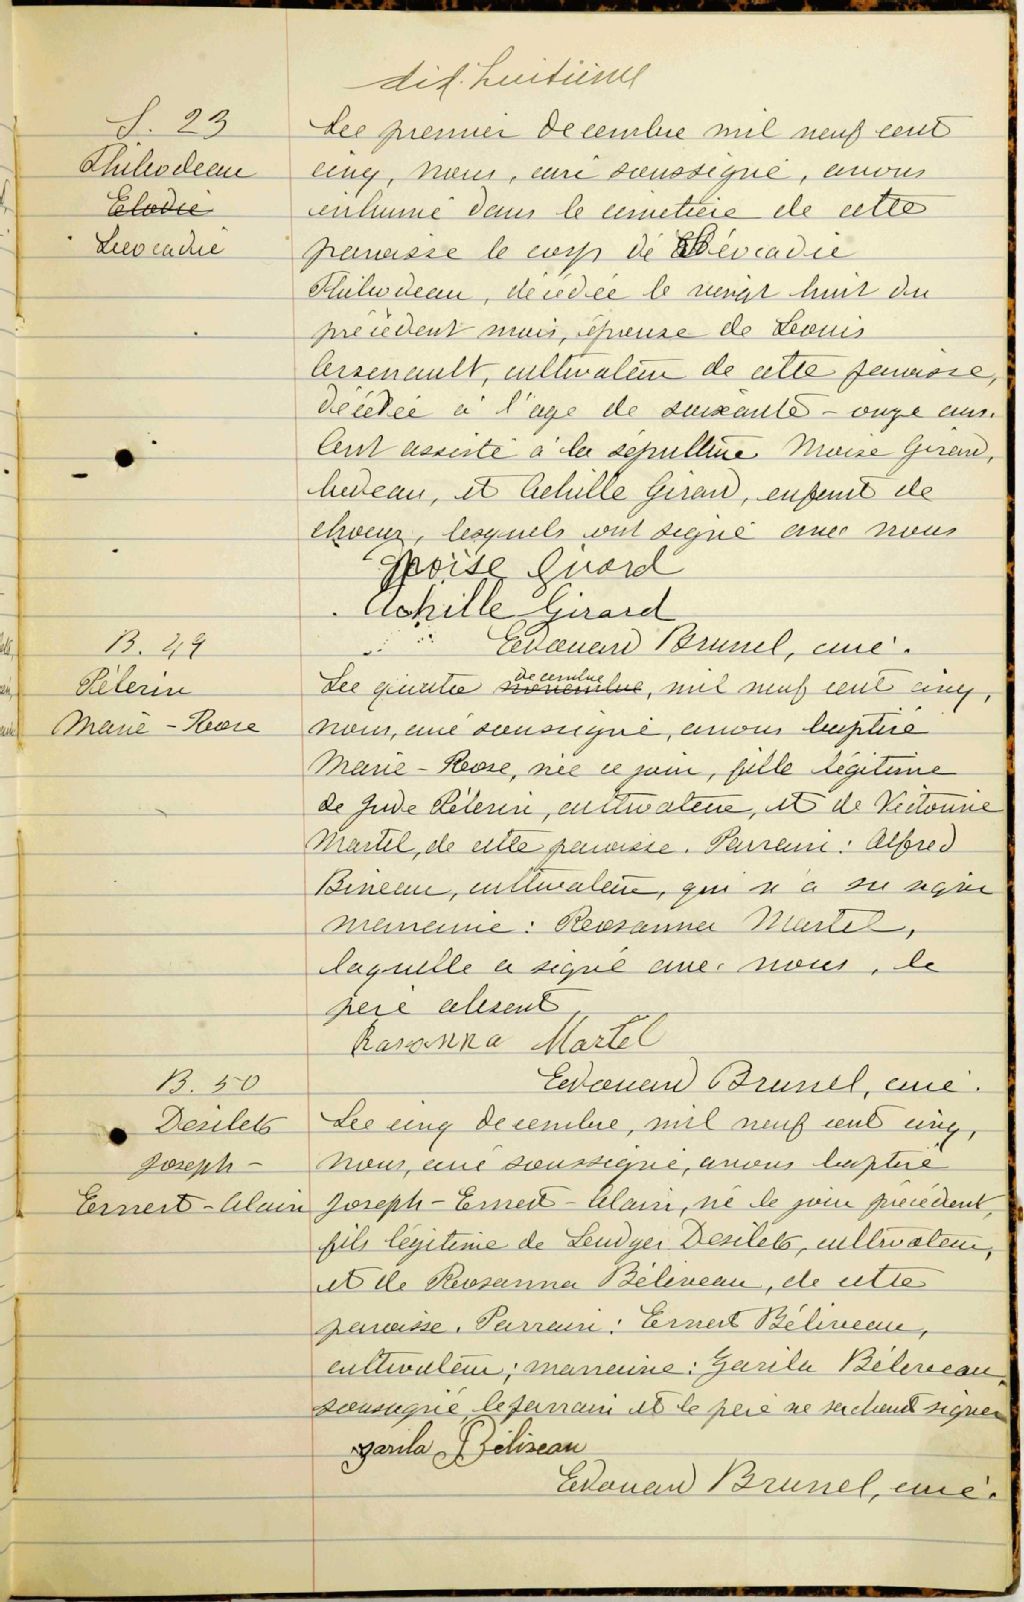 dix huitième
S. 23
Thibodeau
Elodie
Léocadie
Le premier decembre mil neuf cent
cinq, nous, curé soussigné, avons
inhumé dans le cimetière de cette
paroisse le corp de Léocadie
Thibodeau, décédée le vingt huit du
précédent mois, épouse de Louis
Arsenault, cultivateur de cette paroisse,
décédée à l'age de soixante-onze ans.
Ont assisté à la sépulture Moise Girard,
bedeau, et Achille Girard, enfant de
choeur, lesquels ont signé avec nous
Moïse Girard
Achille Girard
Edouard Brunel, curé.
B. 49
Pélerin
Marie-Rose
decembre
Le quatre novembre, mil neuf cent cinq,
nous, curé soussigné, avons baptisé
Marie-Rose, née ce jour, fille légitime
de Jude Pélerin, cultivateur, et de Victorine
Martel, de cette paroisse. Parrain: Alfred
Bineau, cultivateur, qui n'a su signer
marraine: Rosanna Martel,
laquelle a signé avec nous, le
père absent,
Rosanna Martel
Edouard Brunel, curé.
B. 50
Desilets
Joseph-
Ernest-Alain
Le cinq decembre, mil neuf cent cinq,
nous, curé soussigné, avons baptisé
Joseph-Ernest-Alain, né le jour précédent,
fils légitime de Ludger Desilets, cultivateur,
et de Rosanna Béliveau, de cette
paroisse. Parrain: Ernest Béliveau,
cultivateur; marraine: Zarila Béliveau,
soussigné le parrain et le père ne sachant signer
Zarila Béliveau
Edouard Brunel, curé.